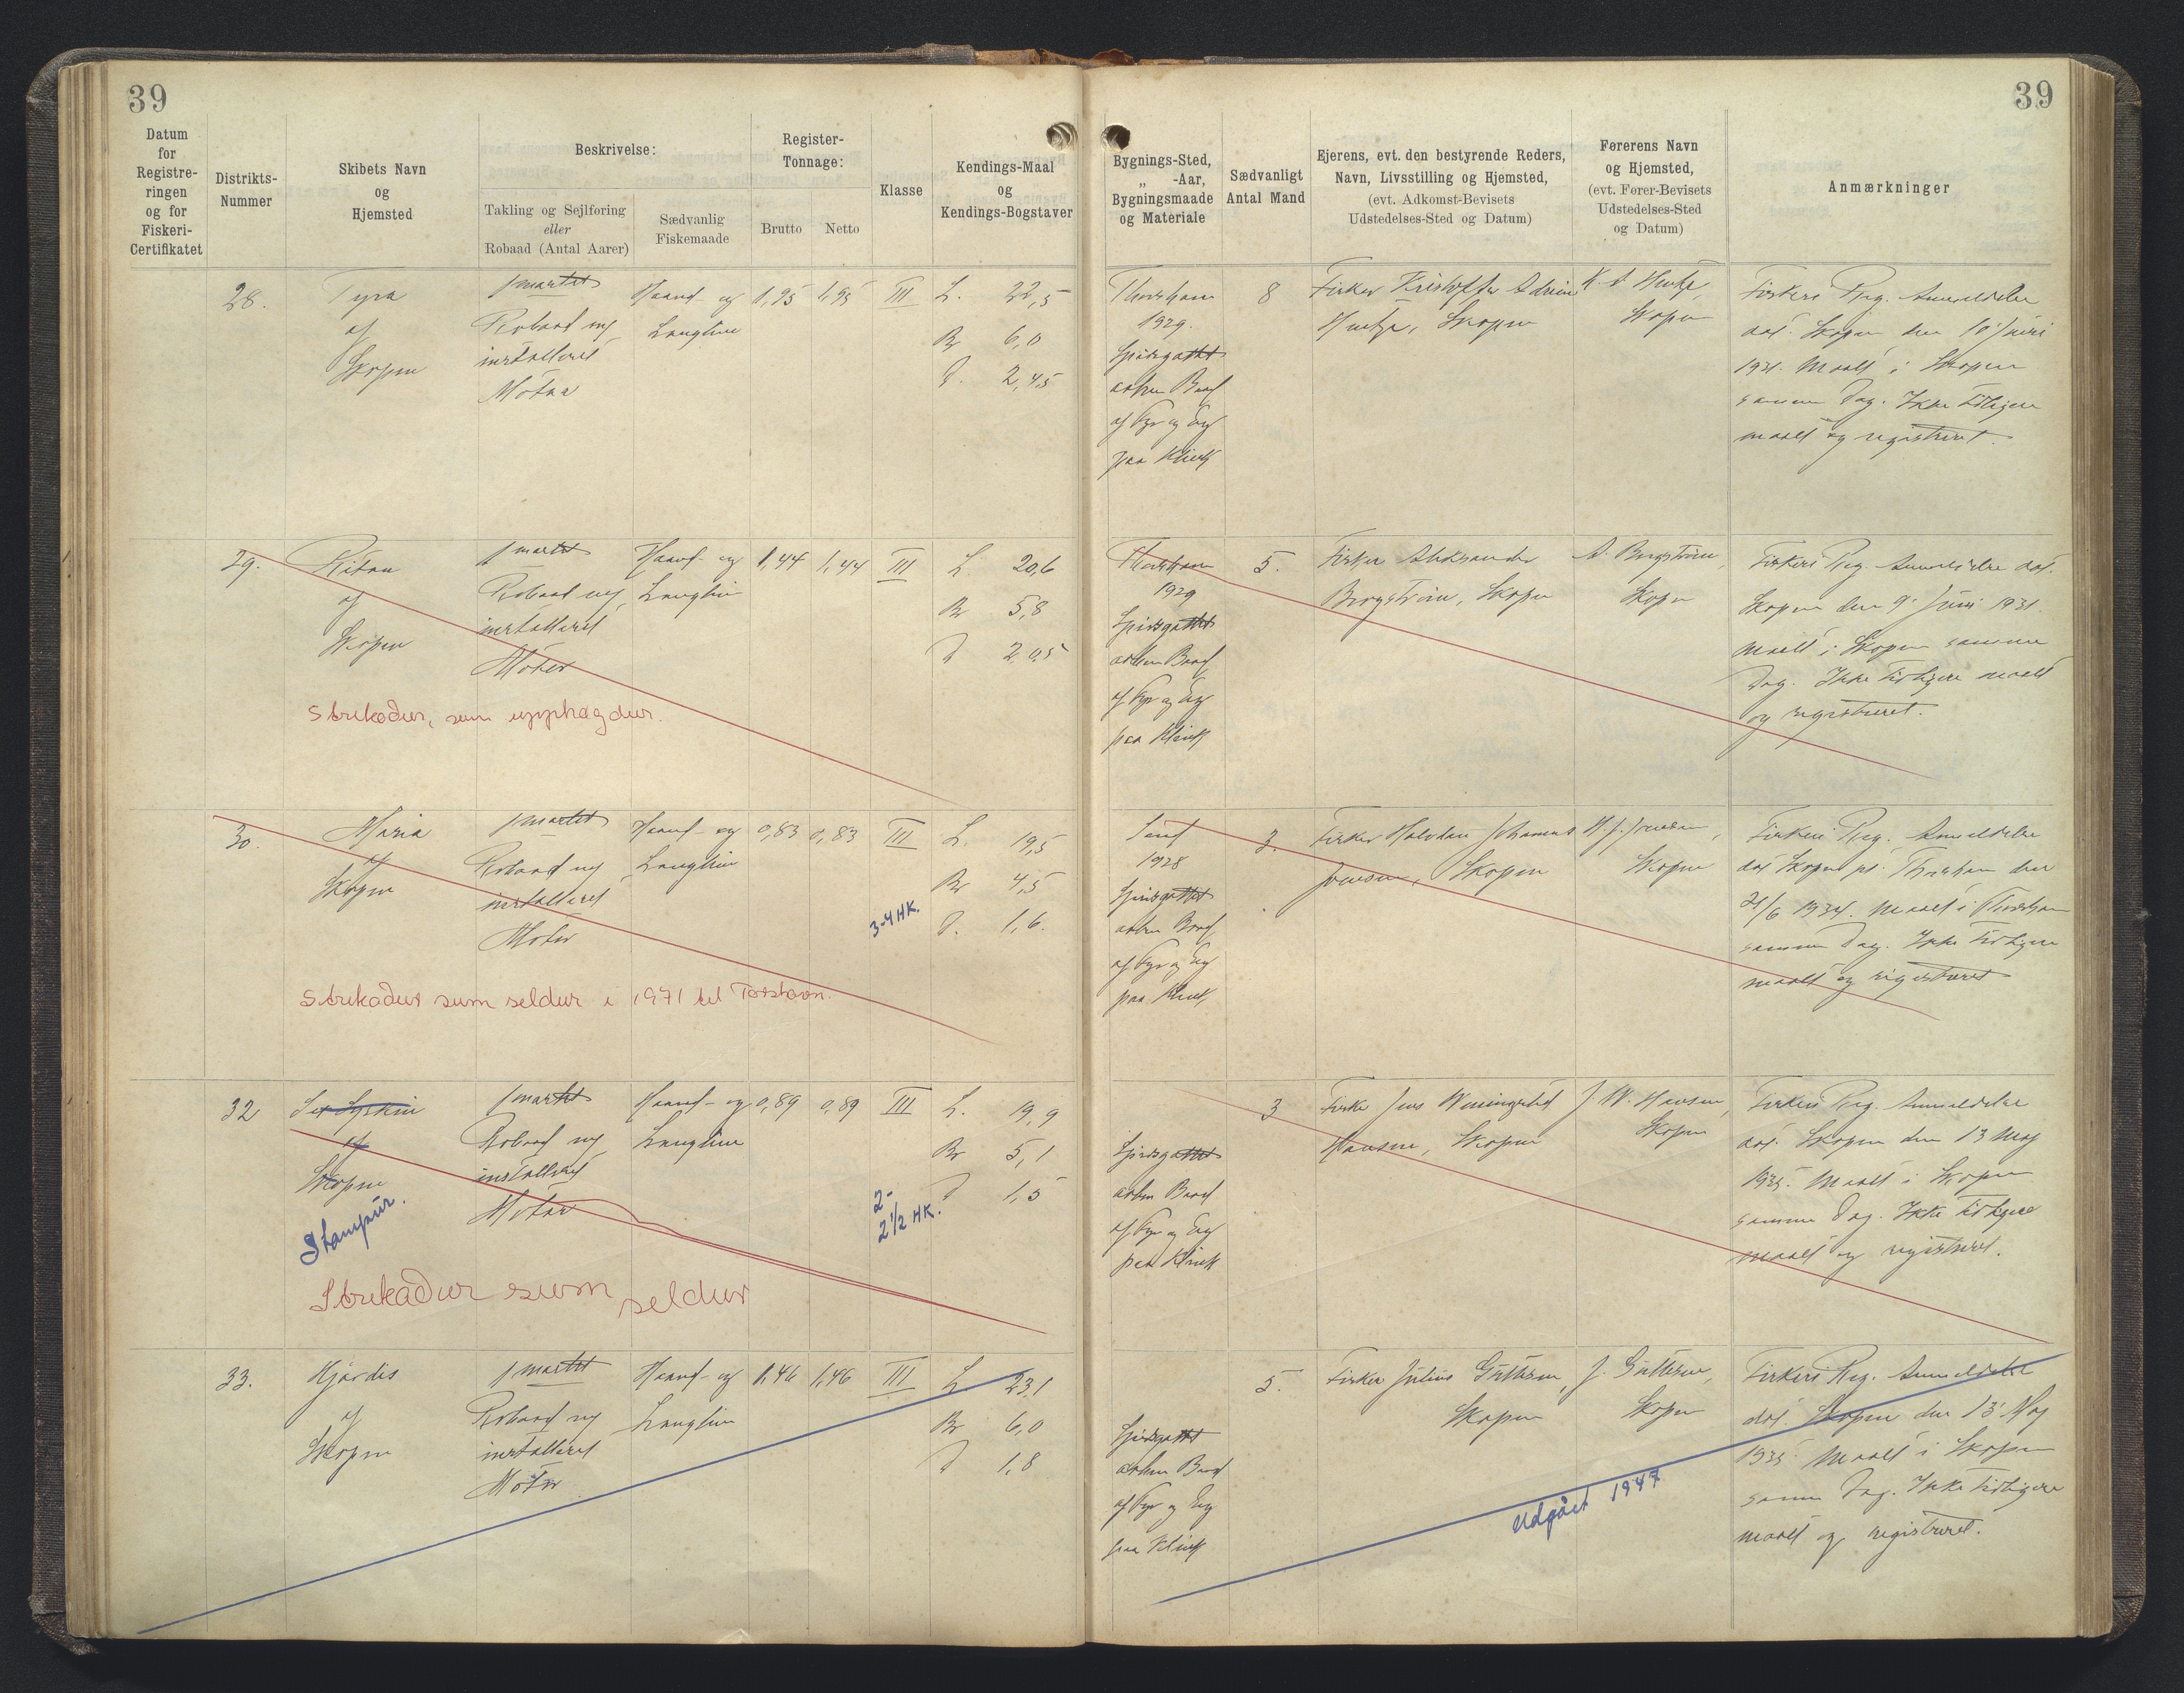 39
39
Datum
for
Registre-
ringen
og for
Fiskeri-
Certifikatet
Distrikts-
Nummer
Skibets Navn
og
Hjemsted
Beskrivelse:
Takling og Sejlføring
eller
Robaad (Antal Aarer)
Sædvanlig
Fiskemaade
Register-
Tonnage:
Brutto
Netto
Klasse
Kendings-Maal
og
Kendings-Bogstaver
Bygnings-Sted,
„ -Aar,
Bygningsmaade
og Materiale
Sædvanligt
Antal Mand
Ejerens, evt. den bestyrende Reders,
Navn, Livsstilling og Hjemsted,
(evt. Adkomst-Bevisets
Udstedelses-Sted og Datum)
Førerens Navn
og Hjemsted,
(evt. Fører-Bevisets
Udstedelses-Sted
og Datum)
Anmærkninger
28.
Tyra
af
Skopun
1 mastet
Robaad m/
installeret
Motor
Haand- og
Langline
1,95
1,95
III
L. 22,5
Br 6,0
D. 2,45
Thorshavn
1929.
Spidsgattet
aaben Baad
af Fyr og Eg
paa Klink
8
Fisker Kristoffer
Skopun
Skopun
Fiskeri Reg. Anmeldelse
dat. Skopun den 10' Juni
1931. Maalt i Skopun
samme Dag. Ikke tidligere
maalt og registreret.
29.
Ritan
af
Skopun
1 mastet
Robaad m/
installeret
Motor
Haand- og
Langline
1,44
1,44
III
L. 20,6
Br 5,8
D 2,05
strikaður, sum upphøgdur.
Thorshavn
1929
Spidsgattet
aaben Baad
af Fyr og Eg
paa Klink
5.
Fisker Aleksander
Bergström, Skopun
A. Bergström,
Skopun
Fiskeri Reg. Anmeldelse dat.
Skopun den 9' Juni 1931.
Maalt i Skopun samme
Dag. Ikke tidligere maalt
og registreret.
30.
Maria
af
Skopun
1 mastet
Robaad m/
installeret
Motor
Haand- og
Langline
0,83
0,83
III
3-4 HK.
L. 19,5
Br 4,5
D. 1,6.
Strikaður sum seldur í 1971 til Torshavn.
Sand
1928
Spidsgattet
aaben Baad
af Fyr og Eg
paa Klink
3.
Fisker Halvdan Johannes
Joensen, Skopun
H. J. Joensen,
Skopun
Fiskeri Reg. Anmeldelse
dat Skopun pt. Thorshavn den
21/6 1934. Maalt i Thorshavn
samme Dag. Ikke tidligere
maalt og registreret
32
af
Skopun
Stampur.
1 mastet
Robaad m/
installeret
Motor
Haand- og
Langline
0,89
0,89
III
2-
2 1/2 HK.
L. 19,9
Br 5,1
D 1,5
Strikaður sum seldur
Spidsgattet
aaben Baad
af Fyr og Eg
paa Klink
3
Fisker Jens Wenningsted
Hansen, Skopun
J. W. Hansen,
Skopun
Fiskeri Reg. Anmeldelse
dat. Skopun den 13 Maj
1935. Maalt i Skopun
samme Dag. Ikke tidligere
maalt og registreret.
33.
Hjørdis
af
Skopun
1 mastet
Robaad m/
installeret
Motor
Haand- og
Langline
1,46
1,46
III
L. 23,1
Br 6,0
D 1,8
Spidsgattet
aaben Baad
af Fyr og Eg
paa Klink
5.
Fisker Julius Guttesen,
Skopun
J. Guttesen,
Skopun
Udgået 1947
Fiskeri Reg. Anmeldelse
dat. Skopun den 13' Maj
1935. Maalt i Skopun
samme Dag. Ikke tidligere
maalt og registreret.